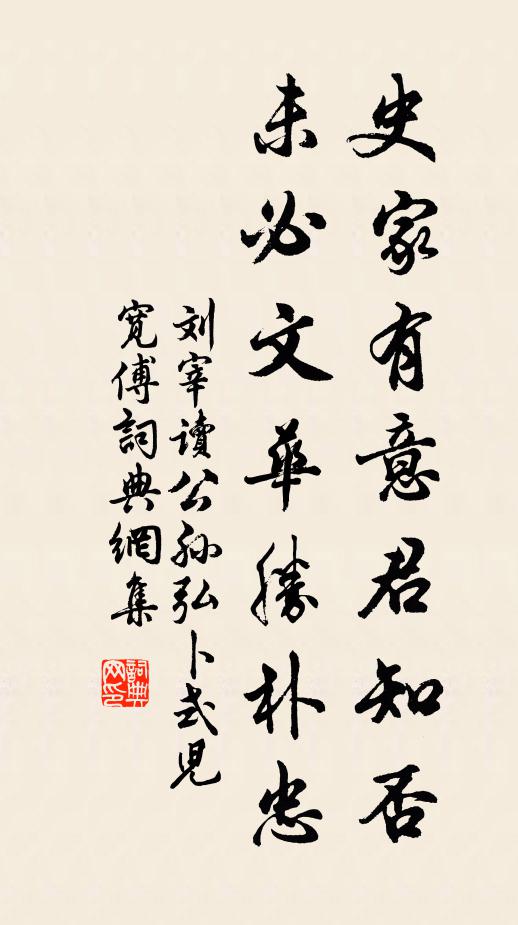 史家有意君知否
未必文華勝朴忠
刘宰讀公孙弘卜式児
寛傅詞典網集
詞典网印